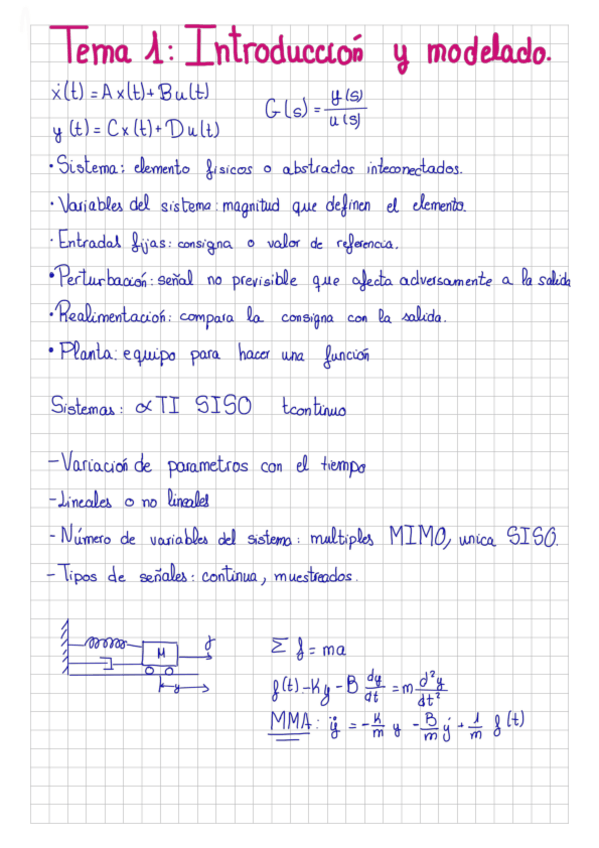 Tema 1: Introducción y modelado.
ẋ(t) = Ax(t) + Bu(t)
G(s) = y(s)/u(s)
y(t) = Cx(t) + Du(t)
• Sistema: elemento fisicos o abstractos inteconectados.
• Variables del sistema: magnitud que definen el elemento.
• Entradas fijas: consigna o valor de referencia.
• Perturbación: señal no previsible que afecta adversamente a la salida
• Realimentación: compara la consigna con la salida.
• Planta: equipo para hacer una función
Sistemas: αTI SISO tcontinuo
- Variación de parametros con el tiempo
- Lineales o no lineales
- Número de variables del sistema: multiples MIMO, unica SISO.
- Tipos de señales: continua, muestreados.
M
f
y
Σ f = ma
f(t) - Ky - B dy/dt = m d²y/dt²
MMA: ÿ = -K/m y - B/m ẏ + 1/m f(t)